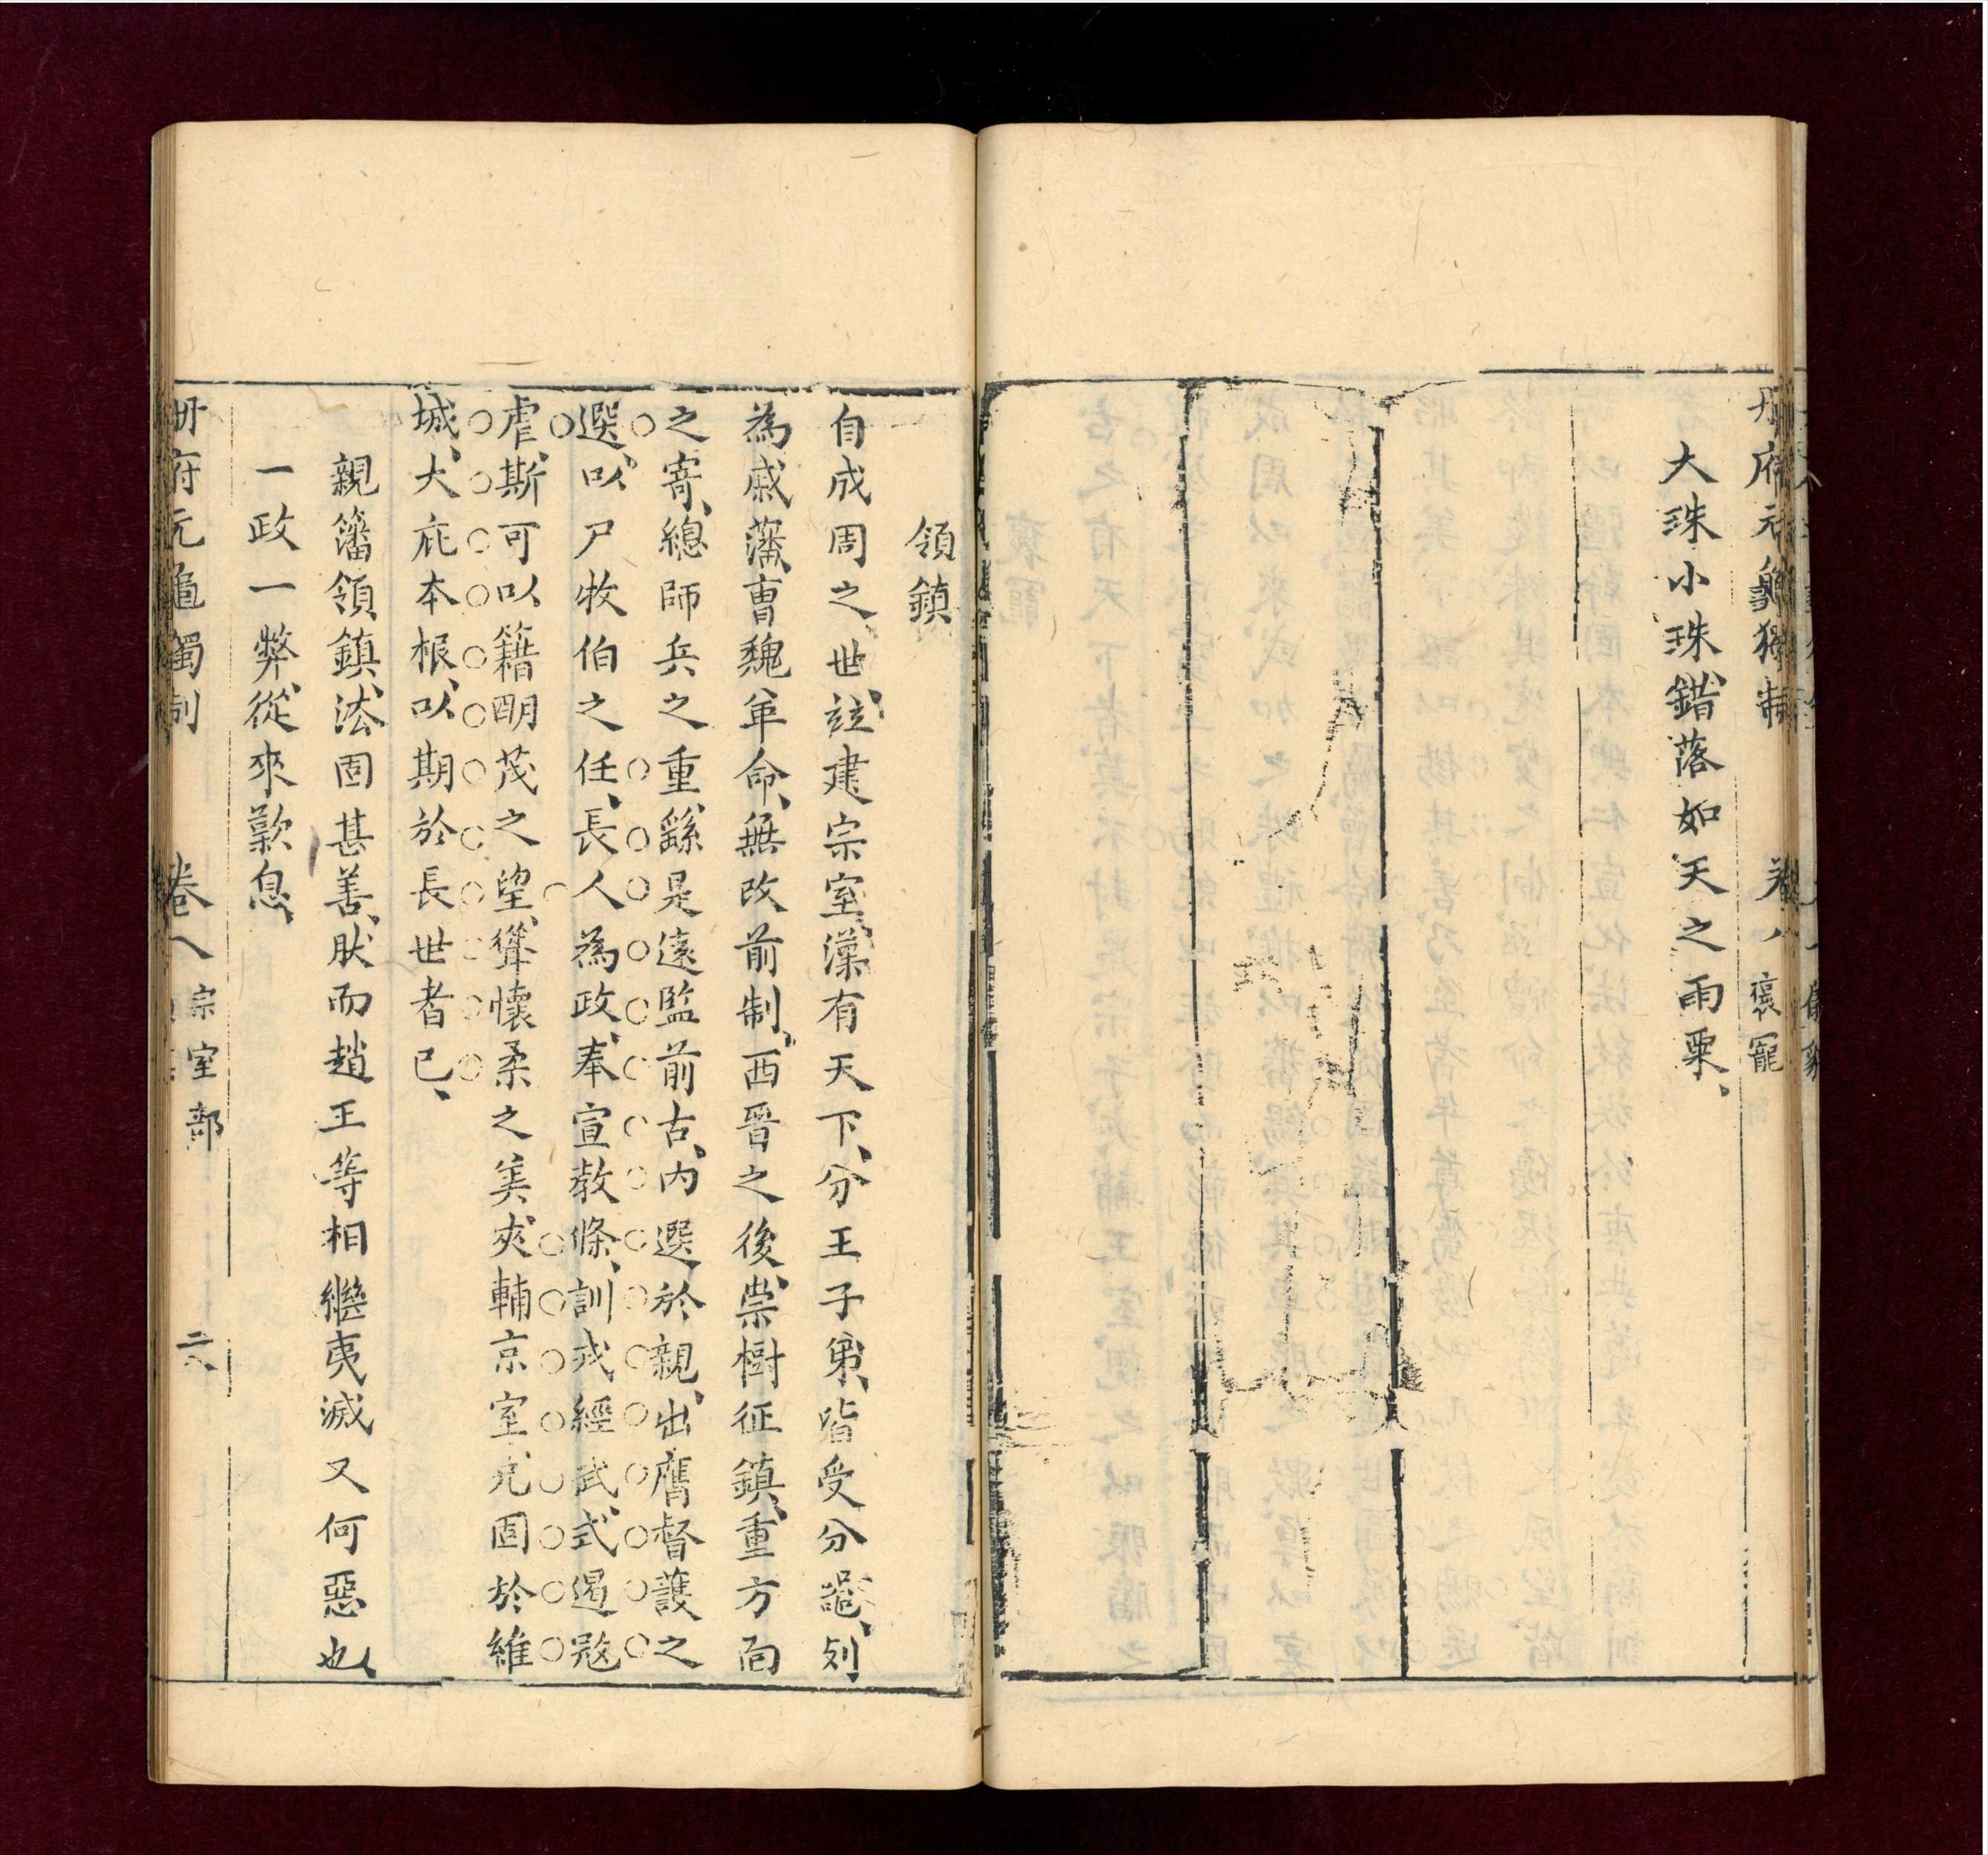 冊府元龜獨制 卷八 褒寵
大珠小珠、錯落如天之雨粟、
領鎮
自成周之世、竝建宗室、漢有天下、分王子弟、皆受分器、列
為戚藩、曹魏革命、無改前制、西晉之後、崇樹征鎮、重方面
之寄、總師兵之重、繇是遠監前古、內選於親、出膺督護之
選、以尸牧伯之任、長人為政、奉宣教條、訓戎經武、式遏寇
虐、斯可以籍明茂之望、聳懷柔之美、夾輔京室、允固於維
城、大庇本根、以期於長世者已、
親籓領鎮、法固甚善、肰而趙王等相繼夷滅又何惡也
一政一弊、從來歎息、
冊府元龜獨制 卷八 宗室部 二八